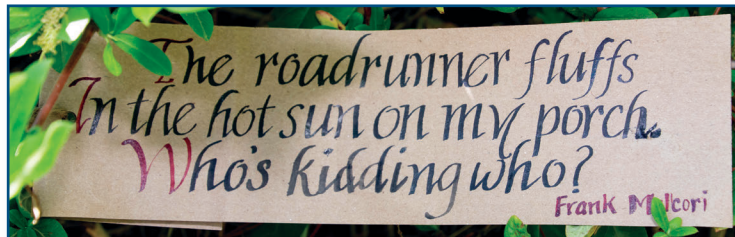 The roadrunner fluffs
In the hot sun on my porch.
Who's kidding who?
Frank